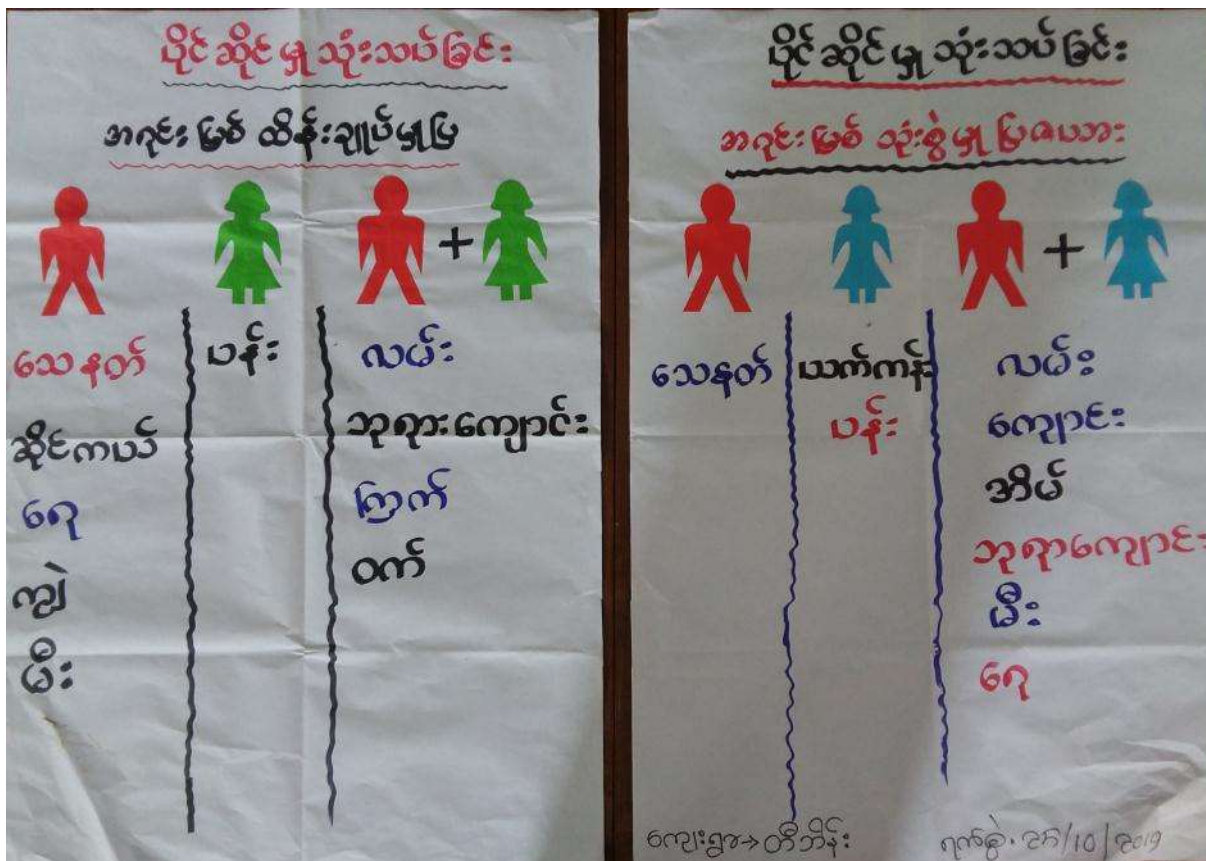 ပိုင်ဆိုင်မှု သုံးသပ်ခြင်း
အရင်းမြစ် ထိန်းချုပ်မှုပြ
+
သေနတ်
ဆိုင်ကယ်
ရေ
ကျွဲ
မီး
ပန်း
လမ်း
ဘုရားကျောင်း
ကြက်
ဝက်
ပိုင်ဆိုင်မှု သုံးသပ်ခြင်း
အရင်းမြစ် သုံးစွဲမှု ပြဇယား
+
သေနတ်
ယက်ကန်း
ပန်း
လမ်း
ကျောင်း
အိမ်
ဘုရာကျောင်း
မီး
ရေ
ကျေးရွာ→တီဘိန်း
ရက်စွဲ. 25/10/2019